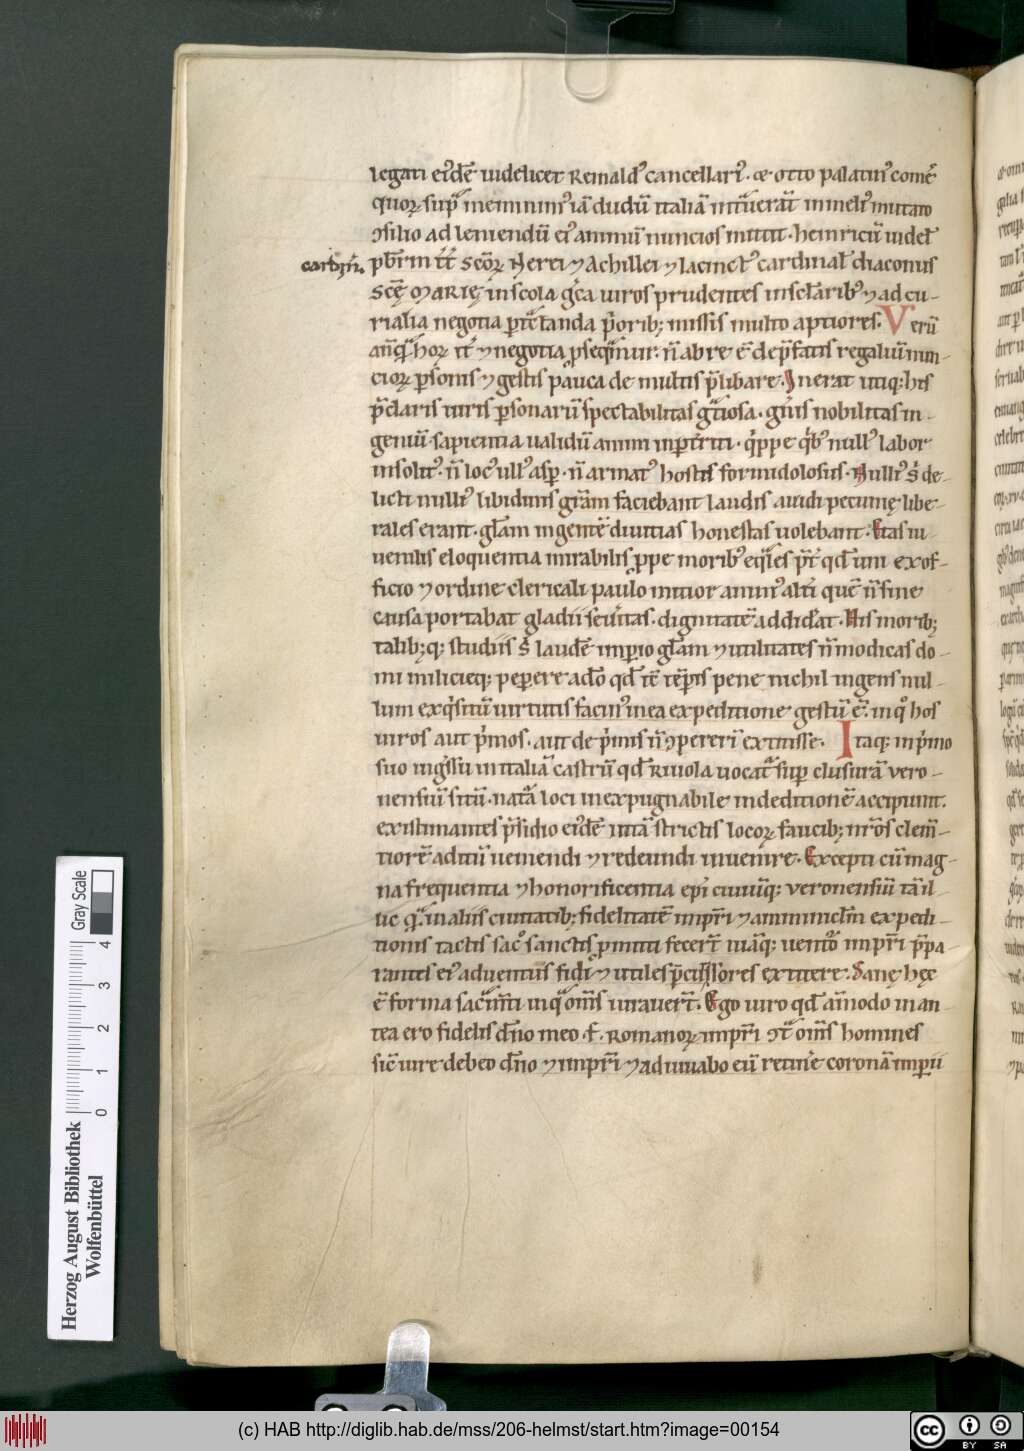 legati ei'dē uidelicet Remald' cancellari'. & otto palatin' comes
quoꝝ sup̄ meminim' iā dudū italiā int̄uerāt in meli' mutato
ꝯsilio ad leniendū ei' animū nuncios mittit. heinricū uidel̄
cardin̄. pb̄rm tt̄ sc̄oꝝ Nerei ⁊ Achillei ⁊ Iacinct' cardinal̄ diaconus
Sc̄ę MARIę in scola gc̄a uiros prudentes in sclarib' ⁊ ad cu-
rialia negotia ptc̄tanda p̄orib; missis multo aptiores. Verū
an̄q̄ hoꝝ it' ⁊ negotia ꝓseq̄mur. n̄ ab re ē de p̄fatis regaliū nun-
cioꝝ psonis ⁊ gestis pauca de multis p̄libare. Inerat utiq; his
p̄claris uiris psonarū spectabilitas gt̄iosa. gn̄is nobilitas in-
geniū sapientia ualidū animi impt̄riti. q̄ppe q̄b' null' labor
insolit'. n̄ loc' ull' asp. n̄ armat' hostis formidolosus. Nulli' s' de-
licti nulli' libidinis grām faciebant laudis auidi pecunię libe-
rales erant. glām ingentē diuitias honestas uolebant. Etas iu-
uenilis eloquentia mirabilis ꝓppe morib' eq̄les p̄t' qd̄ uni ex of-
ficio ⁊ ordine clericali paulo mitior anim' alti' quē n̄ sine
causa portabat gladii seu'itas. dignitatē addid'at. His morib;
talib; q; studiis s' laudē impio glām ⁊ utilitates n̄ modicas do-
mi milicięq; pepere adō qd̄ tē tēpis pene nichil ingens nul-
lum exq̄sitū uirtutis facin' in ea expeditione gestū ē. in q° hos
uiros aut p̄mos. aut de p̄mis n̄ ꝯpererī extitisse. Itaq; in p̄mo
suo ingssū in italiā castrū qd̄ Riuola uocat̄ sup clusurā vero-
nensiū sitū. natā loci inexpugnabile in deditionē accipiunt.
existimantes p̄sidio ei'dē intā strictis locoꝝ faucib; nrōs clem̄-
tiorē aditū ueniendi ⁊ redeundi inuenire. Excepti cū mag-
na frequentia ⁊ honorificentia epī ciuiūq; veronensiū tā il-
lic q̄ in aliis ciuitatib; fidelitatē impr̄i ⁊ amminiclm̄ expedi-
tionis tactis sac° sanctis ꝓmitti fecer̄t uiāq; uent° impr̄i p̄pa-
rantes ei' aduentus fidi ⁊ utiles p̄cursores extitere. Sane hęc
ē forma sac̄mn̄ti in q̄ om̄s iurauert̄. Ego iuro qd̄ āmodo in an-
tea ero fidelis dn̄o meo .f. Romanoꝝ impr̄i ꝯt̄ om̄s homines
sic̄ iure debeo dn̄o ⁊ impr̄i ⁊ adiuuabo eū retin'e coronā impii
Herzog August Bibliothek
Wolfenbüttel
0 1 2 3 4
Gray Scale
(c) HAB http://diglib.hab.de/mss/206-helmst/start.htm?image=00154
cc BY SA